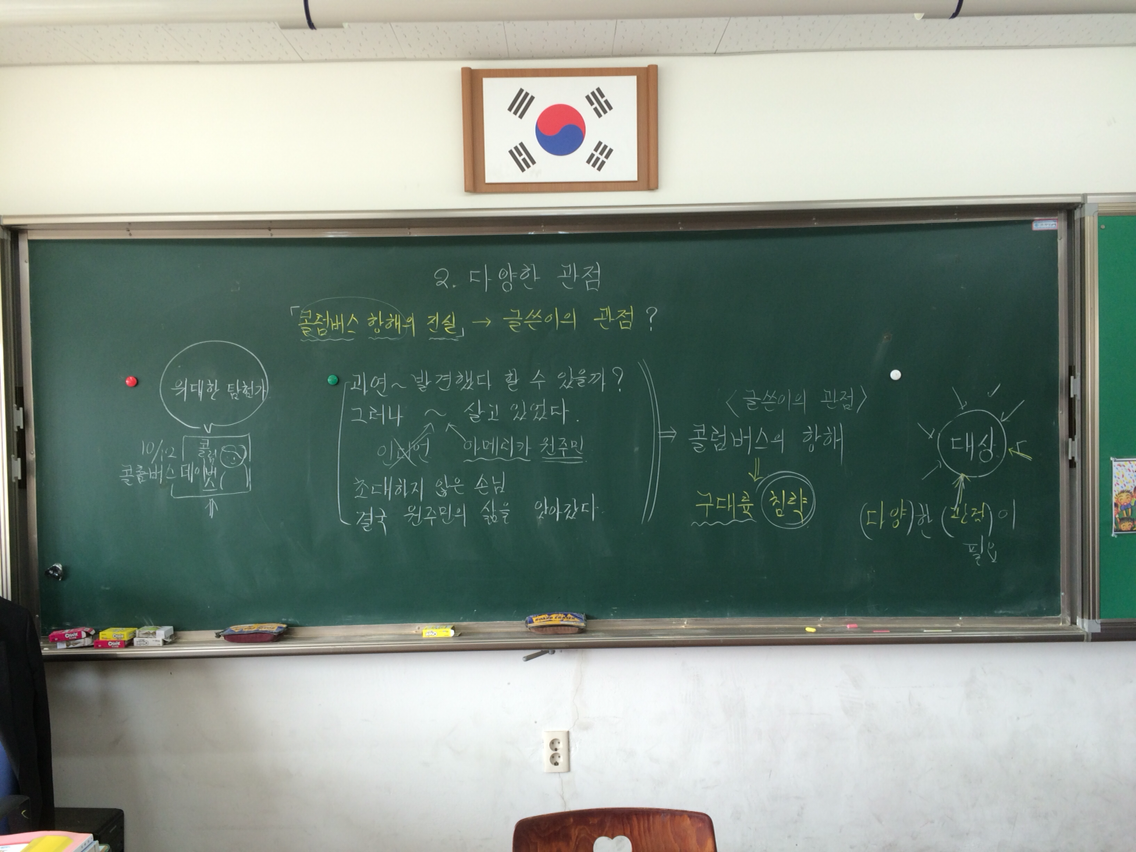 2. 다양한 관점
「콜럼버스 항해의 진실」 → 글쓴이의 관점?
위대한 탐험가
10/12
콜럼버스 데이
콜럼버스
과연~ 발견했다 할 수 있을까?
그러나 ~ 살고 있었다.
인디언 아메리카 원주민
초대하지 않은 손님
결국 원주민의 삶을 앗아갔다.
⇒
<글쓴이의 관점>
콜럼버스의 항해
구대륙 침략
대상
(다양)한 (관점)이
필요